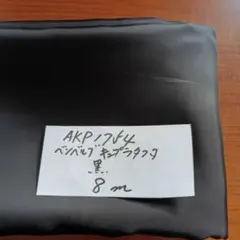 AKP1754
ベンベルグ キュプラタフタ
黒
8m